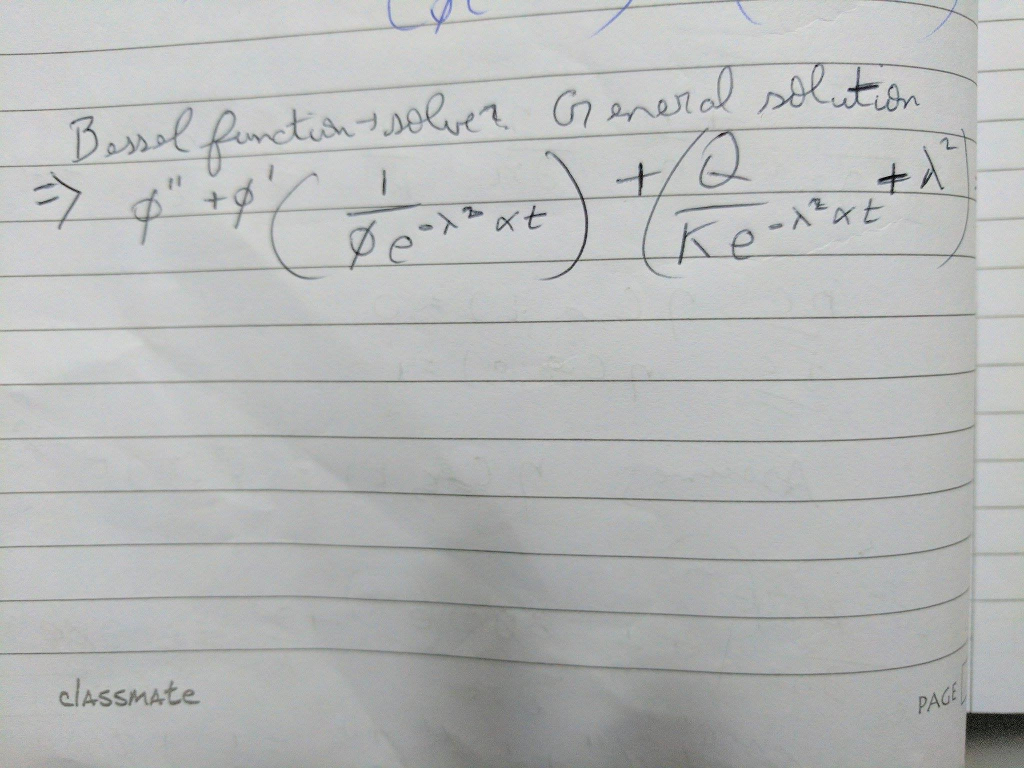 Bessel function → solver General solution
=> φ'' + φ' ( 1 / φe^-λ²αt ) + ( Q / Ke^-λ²αt + λ² )
classmate
PAGE